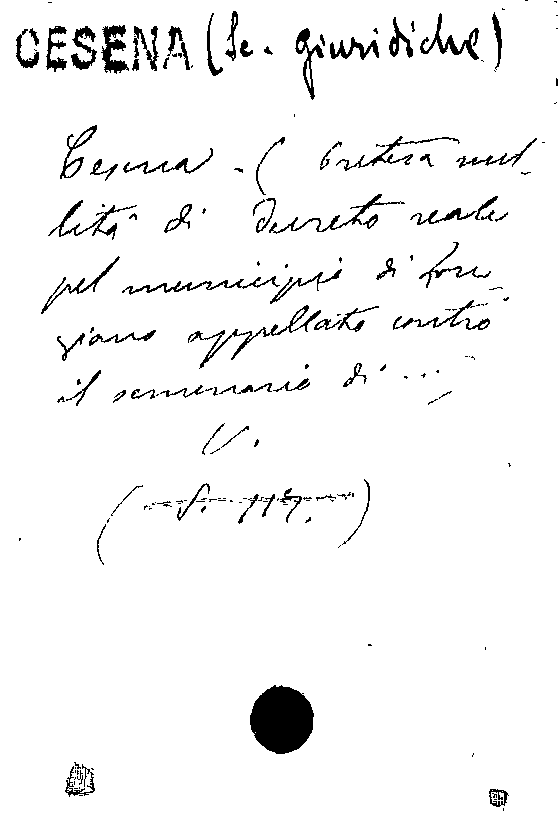 CESENA (Sc. giuridiche)
Cesena - ( Pretesa nul-
lità di Decreto reale
pel municipio di Lon-
giano appellato contro
il seminario di ...
V.
( S. 117. )